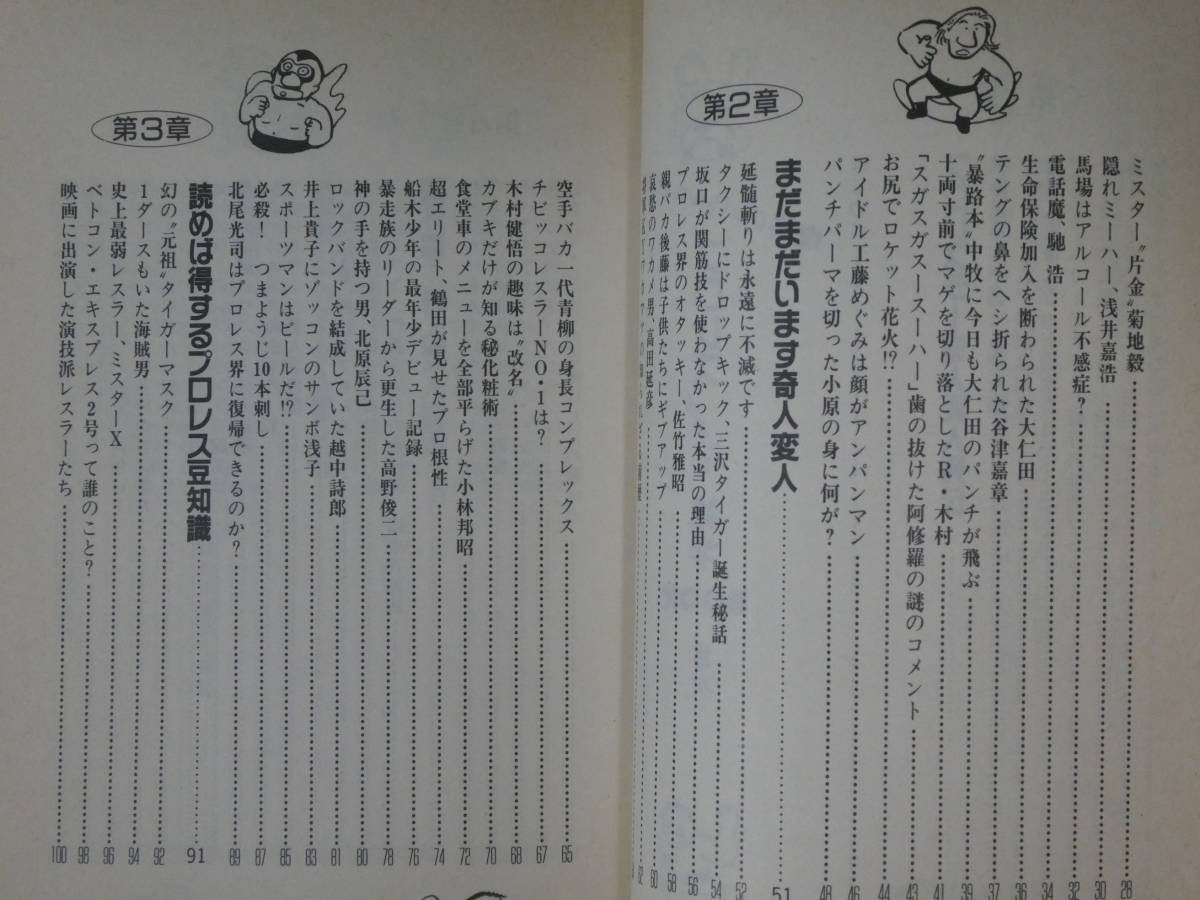 ミスター〝片金〟菊地毅……28
隠れミーハー、浅井嘉浩……30
馬場はアルコール不感症?……32
電話魔、馳 浩……34
生命保険加入を断わられた大仁田……36
テングの鼻をヘシ折られた谷津嘉章……37
〝暴路本〟中牧に今日も大仁田のパンチが飛ぶ……39
十両寸前でマゲを切り落としたR・木村……41
「スガスガスースーハー」歯の抜けた阿修羅の謎のコメント……43
お尻でロケット花火!?……44
アイドル工藤めぐみは顔がアンパンマン……46
パンチパーマを切った小原の身に何が?……48
第2章
まだまだいます奇人変人……51
延髄斬りは永遠に不滅です……52
タクシーにドロップキック、三沢タイガー誕生秘話……54
坂口が関筋技を使わなかった本当の理由……56
プロレス界のオタッキー、佐竹雅昭……58
親バカ後藤は子供たちにギブアップ……60
哀愁のワカメ男、高田延彦……62
空手バカ一代青柳の身長コンプレックス……65
チビッコレスラーNO・1は?……67
木村健悟の趣味は〝改名〟……68
カブキだけが知る秘化粧術……70
食堂車のメニューを全部平らげた小林邦昭……72
超エリート、鶴田が見せたプロ根性……74
船木少年の最年少デビュー記録……76
暴走族のリーダーから更生した高野俊二……78
神の手を持つ男、北原辰己……80
ロックバンドを結成していた越中詩郎……81
井上貴子にゾッコンのサンボ浅子……83
スポーツマンはビールだ!?……85
必殺! つまようじ10本刺し……87
北尾光司はプロレス界に復帰できるのか?……89
第3章
読めば得するプロレス豆知識……91
幻の〝元祖〟タイガーマスク……92
1ダースもいた海賊男……94
史上最弱レスラー、ミスターX……96
ベトコン・エキスプレス2号って誰のこと?……98
映画に出演した演技派レスラーたち……100